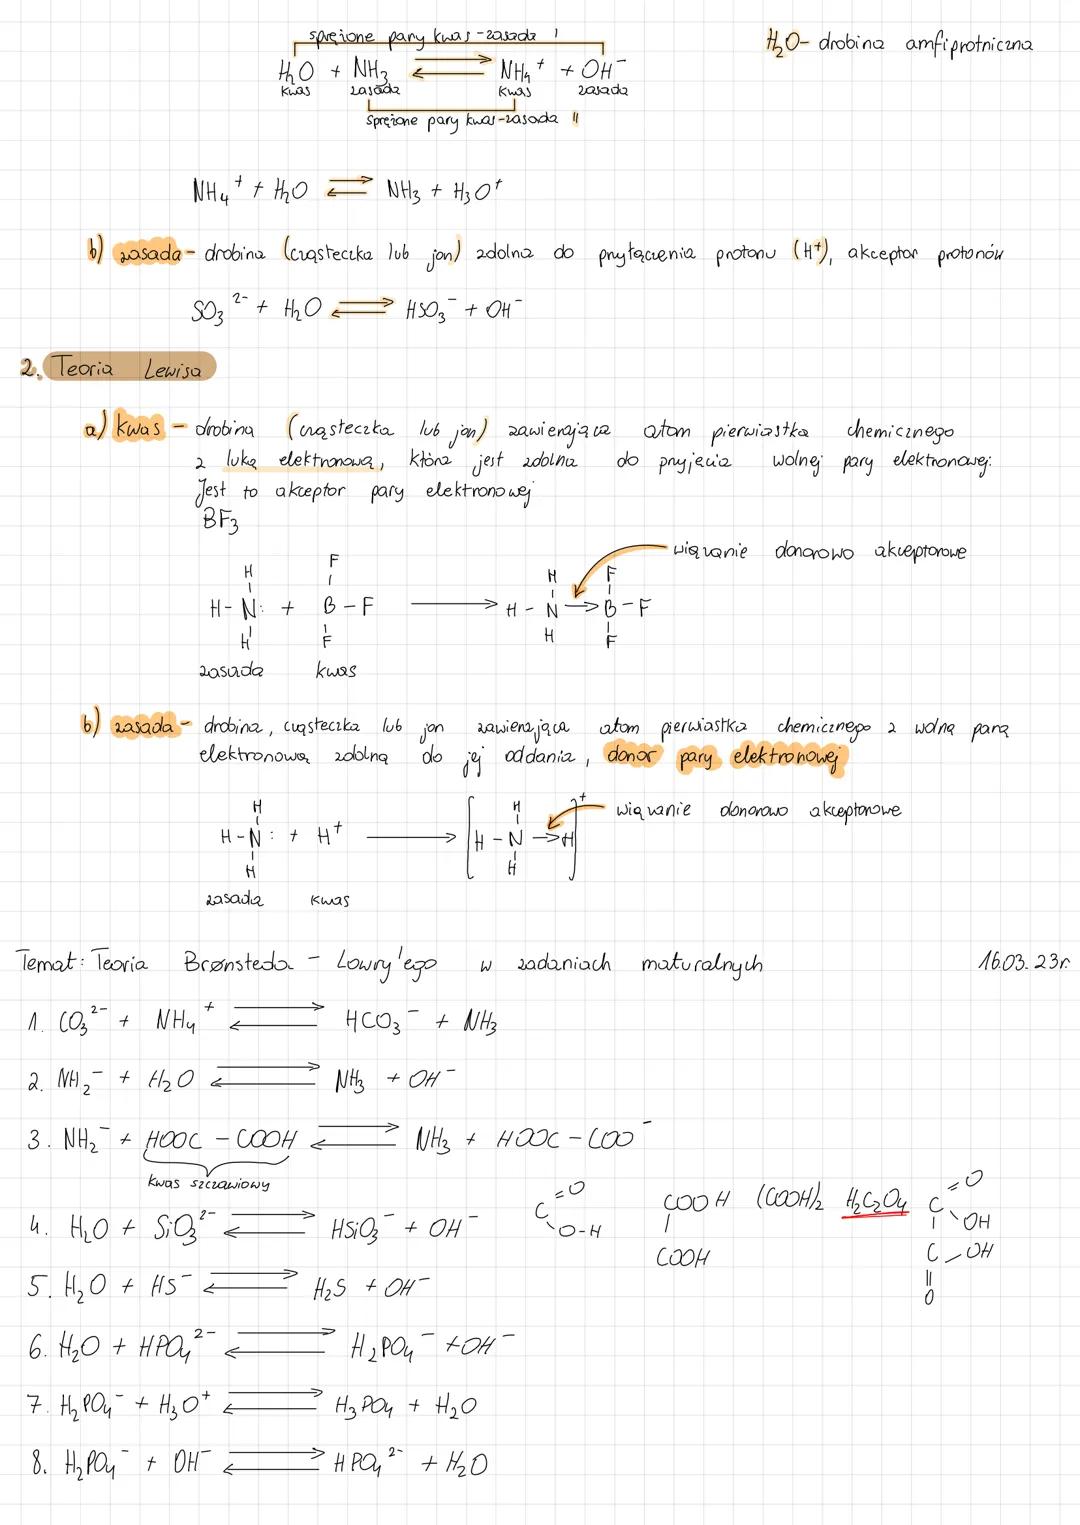 sprężone pary kwas-zasada I
H₂O - drobina amfiprotniczna
H₂O + NH₃ ⇌ NH₄⁺ + OH⁻
kwas zasada kwas zasada
sprężone pary kwas-zasada II
NH₄⁺ + H₂O ⇌ NH₃ + H₃O⁺
b) zasada - drobina (cząsteczka lub jon) zdolna do przyłączenia protonu (H⁺), akceptor protonów
SO₃²⁻ + H₂O ⇌ HSO₃⁻ + OH⁻
2. Teoria Lewisa
a) kwas - drobina (cząsteczka lub jon) zawierająca atom pierwiastka chemicznego
z luką elektronową, która jest zdolna do przyjęcia wolnej pary elektronowej.
Jest to akceptor pary elektronowej
BF₃
wiązanie donorowo akceptorowe
H F H F
H-N: + B-F → H-N→B-F
H F H F
zasada kwas
b) zasada - drobina, cząsteczka lub jon zawierająca atom pierwiastka chemicznego z wolną parą
elektronową zdolną do jej oddania, donor pary elektronowej
wiązanie donorowo akceptorowe
H H
H-N: + H⁺ → [H-N→H]⁺
H H
zasada kwas
Temat: Teoria Brønsteda - Lowry'ego w zadaniach maturalnych 16.03.23r.
1. CO₃²⁻ + NH₄⁺ ⇌ HCO₃⁻ + NH₃
2. NH₂⁻ + H₂O ⇌ NH₃ + OH⁻
3. NH₂⁻ + HOOC-COOH ⇌ NH₃ + HOOC-COO⁻
kwas szczawiowy
C =O O-H
COOH (COOH)₂ H₂C₂O₄ C =O OH
COOH C OH
O
4. H₂O + SiO₃²⁻ ⇌ HSiO₃⁻ + OH⁻
5. H₂O + HS⁻ ⇌ H₂S + OH⁻
6. H₂O + HPO₄²⁻ ⇌ H₂PO₄⁻ + OH⁻
7. H₂PO₄⁻ + H₃O⁺ ⇌ H₃PO₄ + H₂O
8. H₂PO₄⁻ + OH⁻ ⇌ HPO₄²⁻ + H₂O